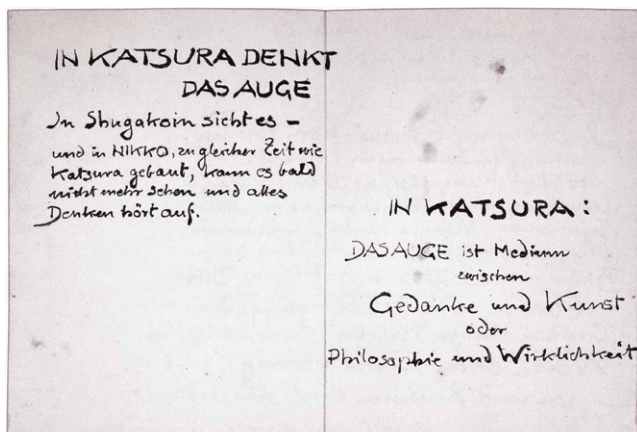 IN KATSURA DENKT
DAS AUGE
In Shugakoin sieht es –
und in NIKKO, zu gleicher Zeit wie
Katsura gebaut, kann es bald
nicht mehr sehen und alles
Denken hört auf.
IN KATSURA:
DAS AUGE ist Medium
zwischen
Gedanke und Kunst
oder
Philosophie und Wirklichkeit